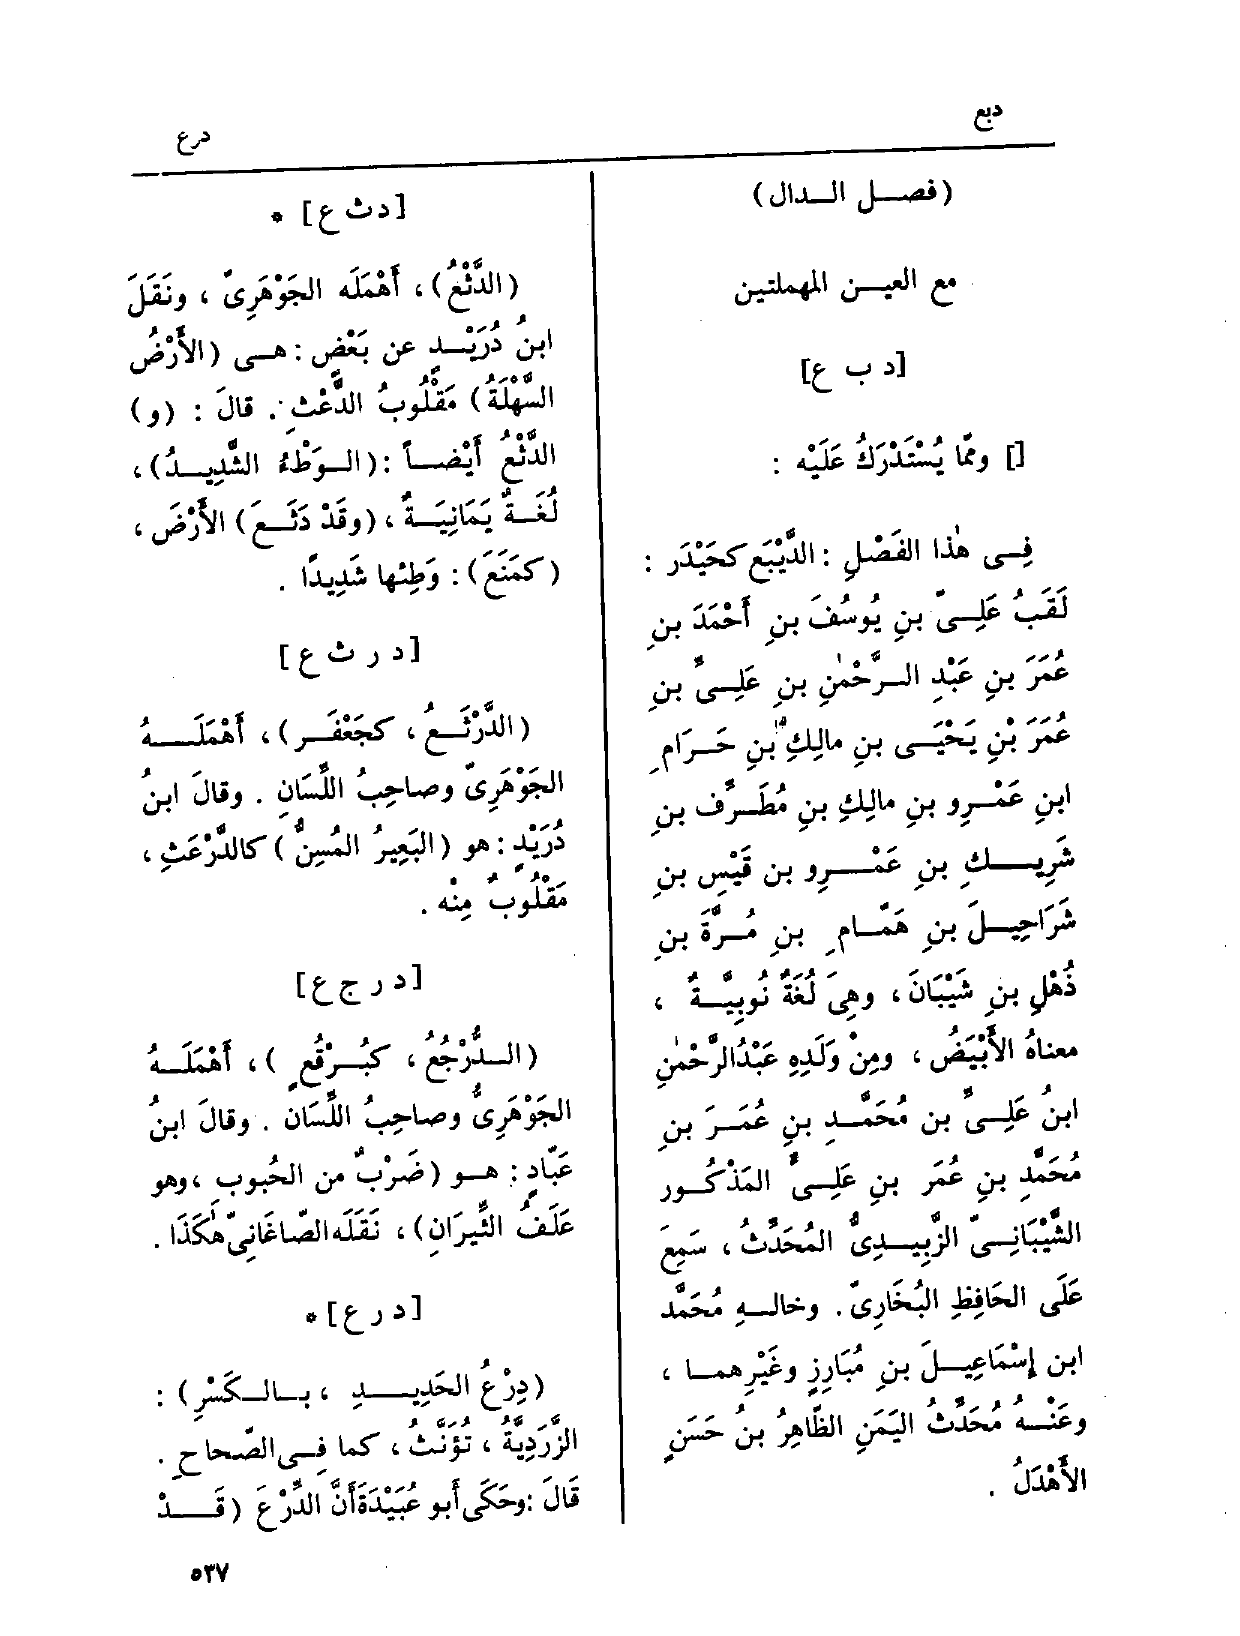 دبع
درع
(فصل الدال)
مع العين المهملتين
[د ب ع]
[] ومّا يُسْتَدْرَكُ عَلَيْه :
فِى هٰذا الفَصْلِ : الدَّيْبَع كحَيْدَر :
لَقَبُ عَلِىّ بنِ يُوسُفَ بنِ أَحْمَدَ بنِ
عُمَرَ بنِ عَبْدِ الرَّحْمٰنِ بنِ عَلِىٍّ بنِ
عُمَرَ بْنِ يَحْيَى بنِ مالِكِ بنِ حَرَامِ
ابنِ عَمْرِو بنِ مالِكِ بنِ مُطَرِّف بنِ
شَرِيكِ بنِ عَمْرِو بن قَيْسِ بنِ
شَرَاحِيلَ بنِ هَمّامِ بنِ مُرَّةَ بنِ
ذُهْلِ بنِ شَيْبَانَ، وهِىَ لُغَةٌ نُوبِيَّةٌ ،
معناهُ الأَبْيَضُ ، ومِنْ وَلَدِهِ عَبْدُالرَّحْمٰنِ
ابنُ عَلِىِّ بن مُحَمَّدِ بنِ عُمَرَ بنِ
مُحَمَّدِ بنِ عُمَرَ بنِ عَلِىٍّ المَذْكُورِ
الشَّيْبَانِىّ الزَّبِيدِىُّ المُحَدِّثُ ، سَمِعَ
عَلَى الحَافِظِ البُخَارِىّ. وخالِهِ مُحَمَّد
ابن إِسْمَاعِيلَ بنِ مُبَارِزٍ وغَيْرِهما ،
وعَنْهُ مُحَدِّثُ اليَمَنِ الطَّاهِرُ بنُ حَسَنٍ
الأَهْدَلُ .
[دث ع] *
(الدَّثْعُ)، أَهْمَلَه الجَوْهَرِىّ ، ونَقَلَ
ابنُ دُرَيْدٍ عن بَعْضٍ : هى (الأَرْضُ
السَّهْلَةُ) مَقْلُوبُ الدَّعْثِ . قالَ : (و)
الدَّثْعُ أَيْضاً :(الوَطْءُ الشَّدِيدُ)،
لُغَةٌ يَمَانِيَةٌ ، (وقَدْ دَثَعَ) الأَرْضَ ،
(كمَنَعَ) : وَطِئها شَدِيدًا .
[د ر ث ع]
(الدَّرْثَعُ ، كجَعْفَرٍ)، أَهْمَلَهُ
الجَوْهَرِىّ وصاحِبُ اللِّسَانِ . وقالَ ابنُ
دُرَيْدٍ : هو (البَعِيرُ المُسِنُّ) كالدَّرْعَثِ ،
مَقْلُوبٌ مِنْه .
[د ر ج ع]
(الدُّرْجُعُ ، كبُرْقُعٍ )، أَهْمَلَهُ
الجَوْهَرِىُّ وصاحِبُ اللِّسَان . وقالَ ابنُ
عَبّادٍ : هو (ضَرْبٌ من الحُبوبِ ،وهو
عَلَفُ الثِّيرَانِ)، نَقَلَه الصّاغَانِىّ هٰكَذَا .
[د ر ع] *
(دِرْعُ الحَدِيدِ ، بالكَسْرِ) :
الزَّرَدِيَّةُ ، تُؤَنَّثُ ، كما فِى الصّحاحِ .
قالَ :وحَكَى أَبو عُبَيْدَةَ أَنَّ الدِّرْعَ (قَدْ
٥٣٧